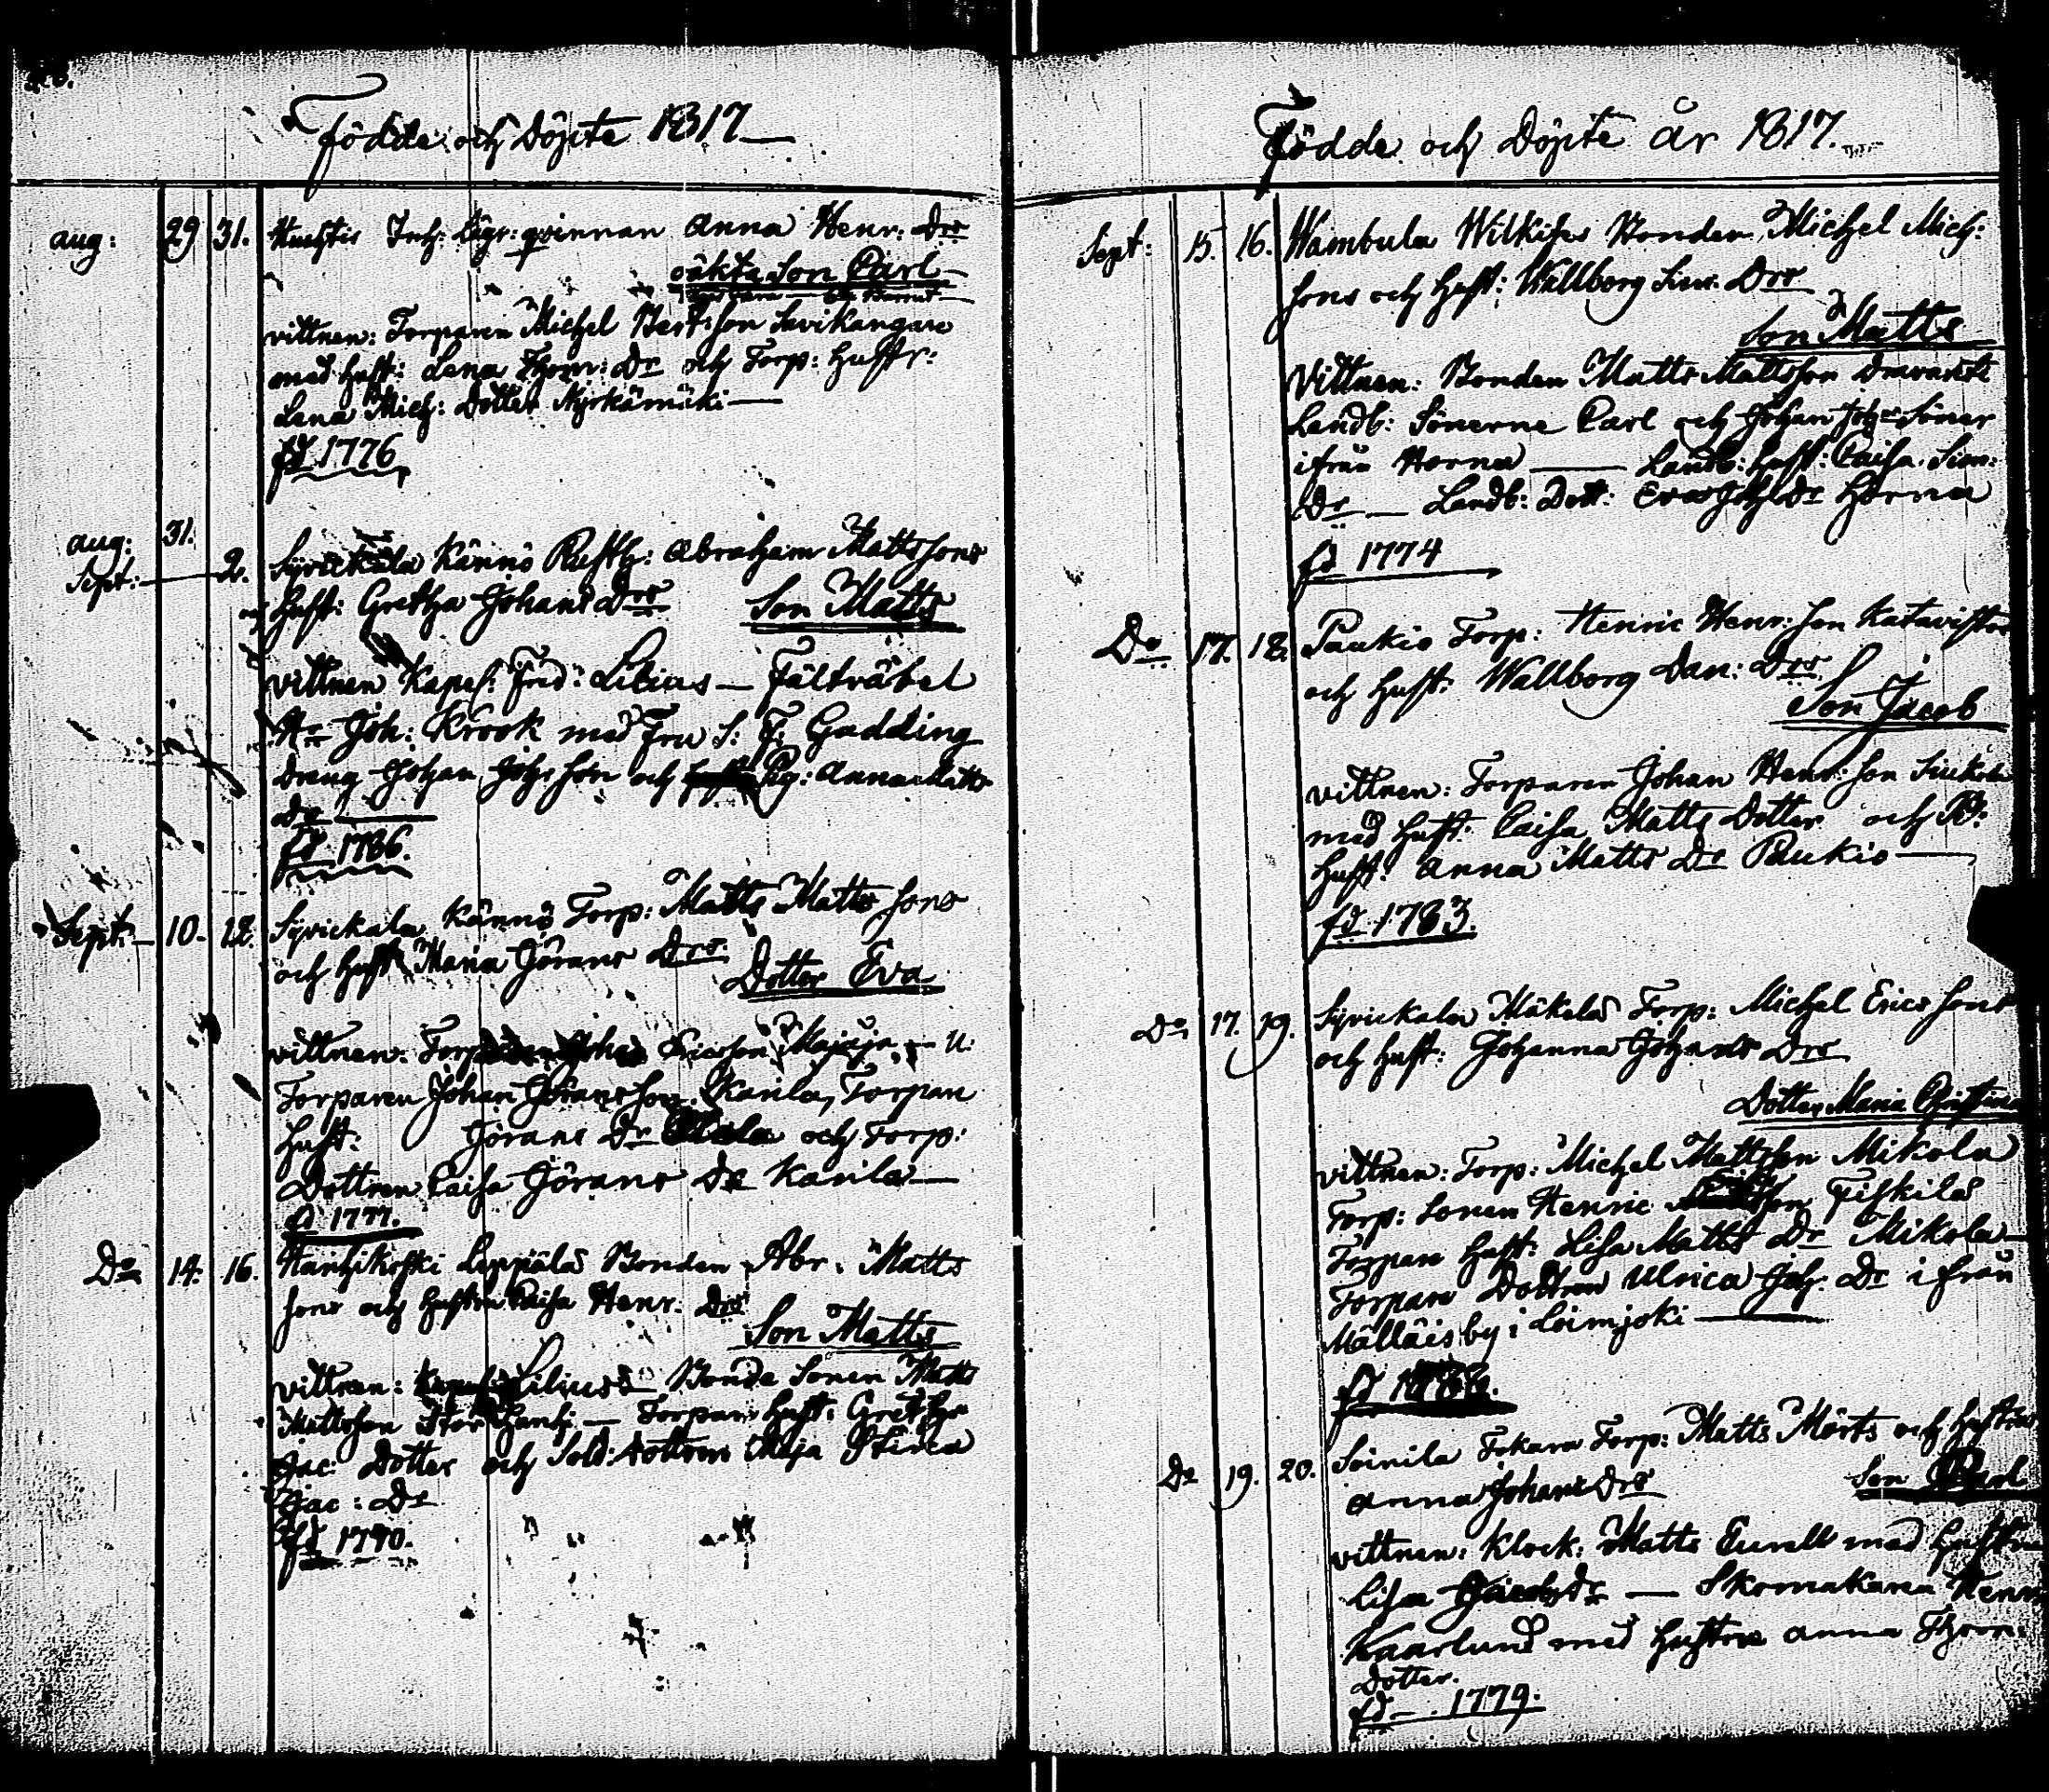 Födde och Döpte 1817
aug: 29 31. Inh: qvinnan Anna Henr: Drs
oäkta Son Carl
vittnen: Torparen Michel Bertsson Savikangare
med hust: Lena Thom: Dr och Torp: hustr:
Lena Mich: Dotter Myrkämäki
fd 1776
aug: 31.
Sept: 2. Syvickala Kännö Rusth: Abraham Mattssons
hust: Gretha Johans Drs Son Matts
vittnen Kapel: Fred: Lilius — Fältväbel
Hr Joh: Krook med Fru S: F: Gadding
Dräng Johan Johsson och Pig: Anna Matts
Dr
fd 1786.
Sept: 10. 12. Syvickala Kännö Torp: Matts Matts sons
och hust Maria Görans Drs
Dotter Eva
vittnen: Ericsson u:
Torparen Johan Göransson Kanila, Torpare
hust: Görans Dr och Torp:
Dottren Caisa Görans Dr Kanila
fd 1777.
Do 14. 16. Leppälä Bonden Abr. Matts
sons och hustru Caisa Henr: Drs
Son Matts
vittnen: Lilius Bonde Sonen Matts
Mattsson Stor — Torpare hust: Gretha
Jac: Dotter och Sold: dottren Maja Stina
Jac: Dr
fd 1790.
Födde och Döpte År 1817.
Sept: 15. 16. Wambula Wilkises Bonden Michel Mich:
sons och hust: Wallborg Sim: Drs
Son Matts
Vittnen: Bonden Matts Mattsson
Landb: Sönerne Carl och Johan Joh: Söner
ifrån Horna — Landb: hust: Caisa Sim:
Dr — Landb: Dott: Eva Joh: Dr Horna
fd 1774
Do 17. 18. Paukio Torp: Henric Henr: son Katavisto
och hust: Wallborg Dan: Drs
Son Jacob
vittnen: Torparen Johan Henr: son
med hust: Caisa Matts Dotter och
hust: Anna Matts Dr Paukio
fd 1783.
Do 17. 19. Syvickala Mäkelä Torp: Michel Erics sons
och hust: Johanna Johans Drs
Dotter Maria Christina
vittnen: Torp: Michel Mattsson Mikola
Torp: sonen Henric
Torpare hust: Lisa Matts Dr Mikola
Torpare Dottren Ulrica Joh: Dr ifrån
Mälläis by i Loimjoki
fd
Do 19. 20. Soinila Torp: Matts Mörts och hustrus
Anna Johans Drs Son Carl
vittnen: Klock: Matts med hustru
Lisa Jacobs Dr — Skomakaren Henr
Kaarlund med hustru Anna Thom:
Dotter.
fd — 1779.